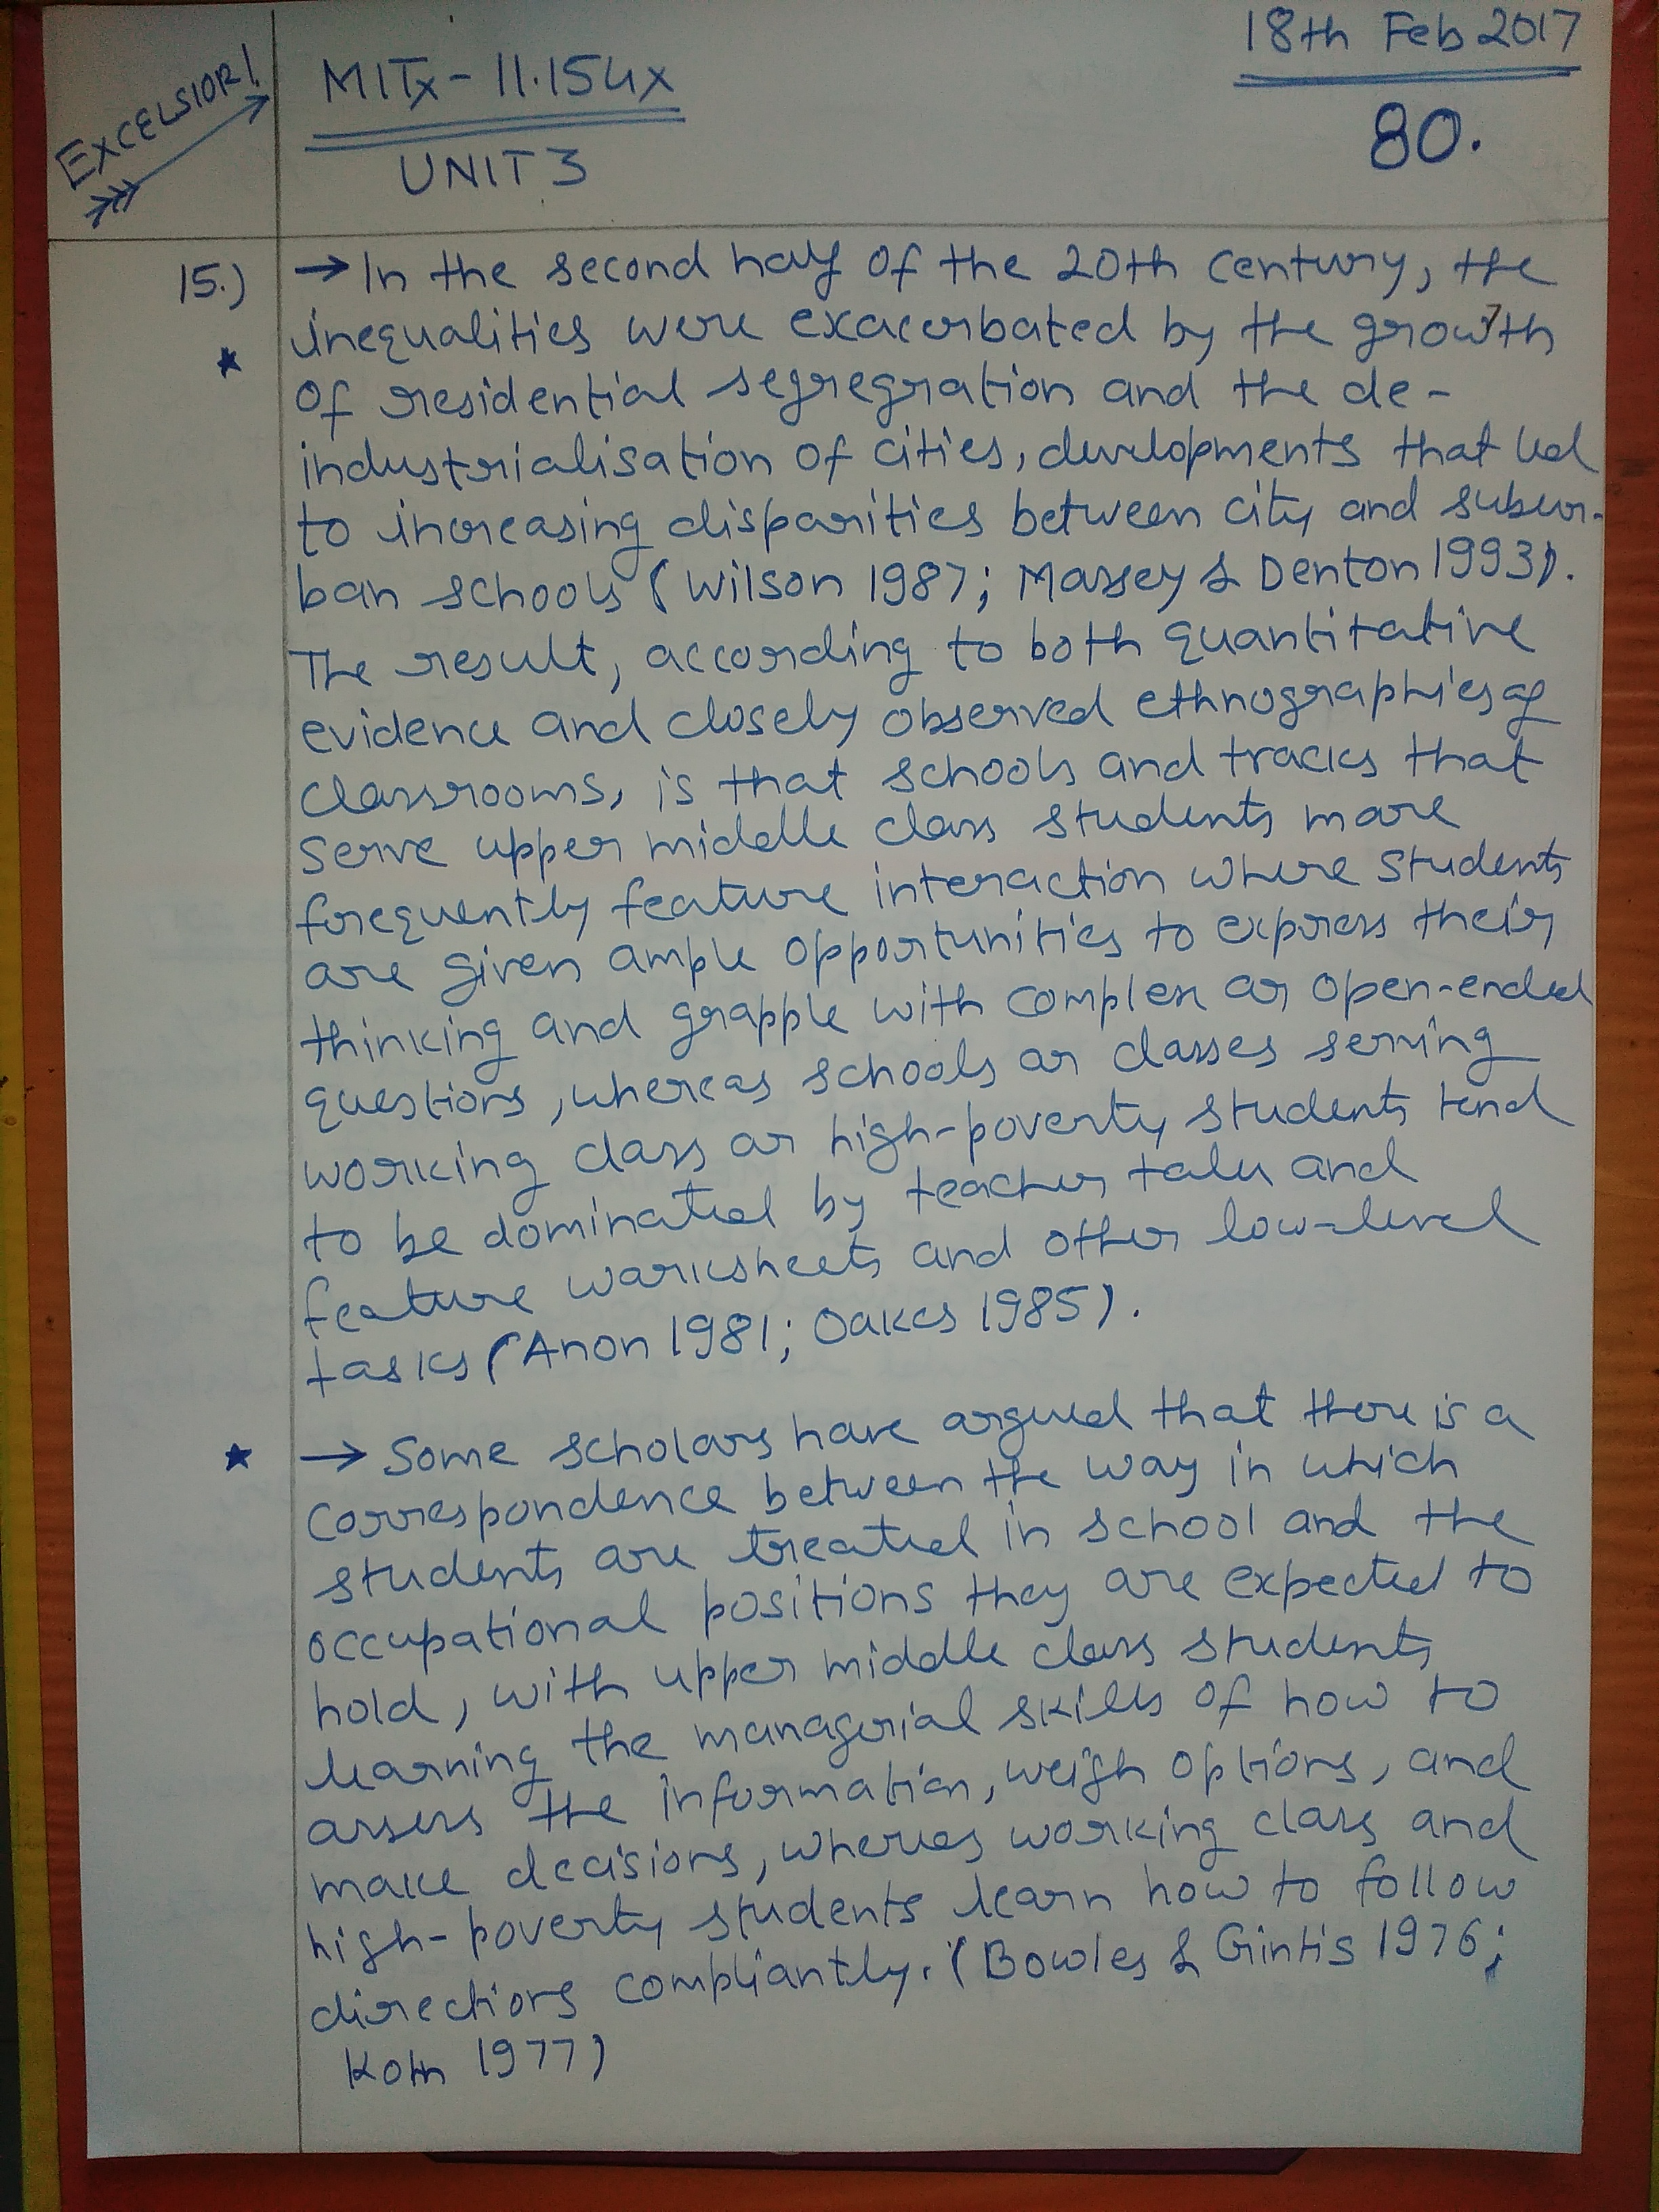 18th Feb 2017
EXCELSIOR!
MITx - 11.154x
80.
UNIT 3
15.) → In the second half of the 20th century, the
inequalities were exacerbated by the growth
of residential segregration and the de-
industrialisation of cities, developments that led
to increasing disparities between city and subur-
ban schools (Wilson 1987; Massey & Denton 1993).
The result, according to both quantitative
evidence and closely observed ethnographies of
classrooms, is that schools and tracks that
serve upper middle class students more
frequently feature interaction where students
are given ample opportunities to express their
thinking and grapple with complex or open-ended
questions, whereas schools or classes serving
working class or high-poverty students tend
to be dominated by teacher talk and
feature worksheets and other low-level
tasks (Anon 1981; Oakes 1985).
→ Some scholars have argued that there is a
correspondence between the way in which
students are treated in school and the
occupational positions they are expected to
hold, with upper middle class students
learning the managerial skills of how to
assess the information, weigh options, and
make decisions, whereas working class and
high-poverty students learn how to follow
directions compliantly. (Bowles & Gintis 1976;
Kohn 1977)